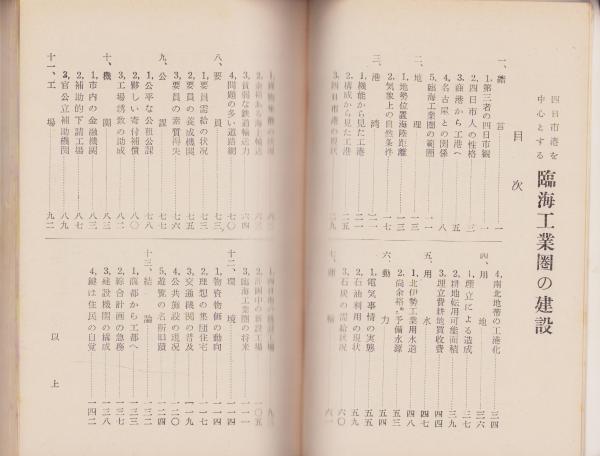 四日市港を
中心とする
臨海工業圏の建設
目次
一、緒言 一
1、第三者の四日市観 一
2、四日市人の性格 三
3、商港から工港へ 五
4、名古屋との関係 八
5、臨海工業圏の範囲 一一
二、地理 一三
1、地勢位置海陸距離 一三
2、気象上の自然条件
三、港湾 二一
1、機能から見た工港 二一
2、構成から見た工港 二五
3、四日市港の現状 二九
4、南北地帯の工港化 三四
四、用地 三六
1、埋立による造成 三七
2、耕地転用可能面積 三九
3、埋立費耕地買収費 四四
五、用水 四七
1、北伊勢工業用水道 四八
2、尚余裕ある予備水源 五三
六、動力 五四
1、電気事情の実態 五五
2、石油利用の現状 五九
3、石炭の需給状況 六〇
七、運輸 六一
3、貧弱な鉄道輸送力
4、問題の多い道路網 七〇
八、要員 七三
1、要員需給の状況 七三
2、要員の養成機関 七五
3、要員の素質得失 七六
九、公課 七八
1、公平な公租公課 七八
2、夥しい寄付補償 八〇
3、工場誘致の助成 八二
十、機関 八三
1、市内の金融機関 八三
2、補助的下請工場 八七
3、官公立補助機関 八九
十一、工場 九二
2、計画中の新設工場 一〇五
3、臨海工業圏の将来 一一一
十二、環境 一一四
1、物資物価の動向 一一四
2、理想の集団住宅 一一七
3、交通機関の普及 一一九
4、公共施設の現況 一二四
5、遊覧の名所旧蹟 一二八
十三、結論 一三二
1、商都から工都へ 一三三
2、綜合計画の急務 一三七
3、建設機関の構成 一三八
4、鍵は住民の自覚 一四二
以上